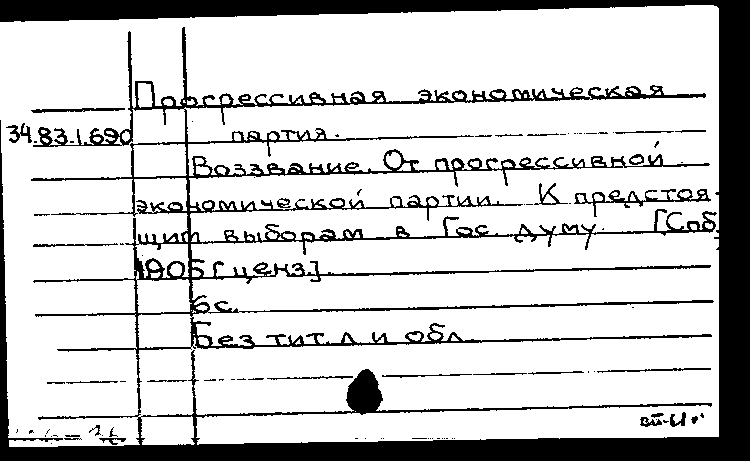 Прогрессивная экономическая
34.83.1.690 партия.
Воззвание. От прогрессивной
экономической партии. К предстоя-
щим выборам в Гос. думу. [Спб.
1905 г ценз.]
6с.
Без тит. л и обл.